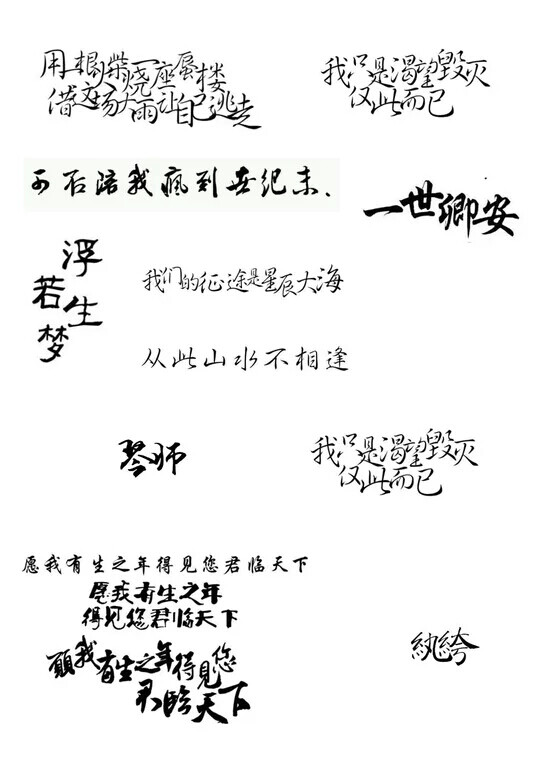 用一根柴烧一座蜃楼
借这场大雨让自己逃走
我只是渴望毁灭
仅此而已
可否陪我疯到世纪末、
一世卿安
浮生
若梦
我们的征途是星辰大海
从此山水不相逢
琴师
我只是渴望毁灭
仅此而已
愿我有生之年得见您君临天下
愿我有生之年
得见您君临天下
願我有生之年得見您
君临天下
纨绔